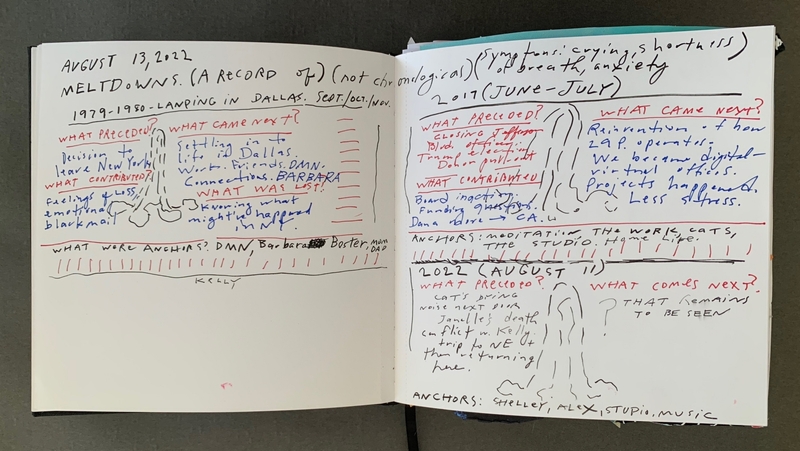 AUGUST 13, 2022
MELTDOWNS. (A RECORD OF) (not chronological) (symptoms: crying, shortness of breath, anxiety)
1979-1980-LANDING IN DALLAS. SEPT./OCT./NOV.
WHAT PRECEDED?
Decision to
leave New York
WHAT CONTRIBUTED?
Feelings of loss,
emotional
blackmail
WHAT CAME NEXT?
Settling in to
life in Dallas
Work. Friends. DMN.
Connections. BARBARA
WHAT WAS LOST?
Knowing what
might've happened
in NY.
WHAT WERE ANCHORS? DMN, Barbara Boster, MOM DAD
KELLY
2017 (JUNE-JULY)
WHAT PRECEDED?
CLOSING Jefferson
Blvd. office.
Trump election
Donor pull-out
WHAT CONTRIBUTED
Board inaction
Funding questions.
Dana move → CA.
WHAT CAME NEXT?
Reinvention of how
29P. operates.
We became digital-
virtual offices.
Projects happened.
Less stress.
ANCHORS: MEDITATION, THE WORK, CATS,
THE STUDIO. Home Life.
2022 (AUGUST 11)
WHAT PRECEDED?
CAT'S DYING
NOISE NEXT DOOR
Janelle's death
conflict w. Kelly.
trip to NE +
then returning
here.
WHAT COMES NEXT?
? THAT REMAINS
TO BE SEEN
ANCHORS: SHELLEY, ALEX, STUDIO, MUSIC